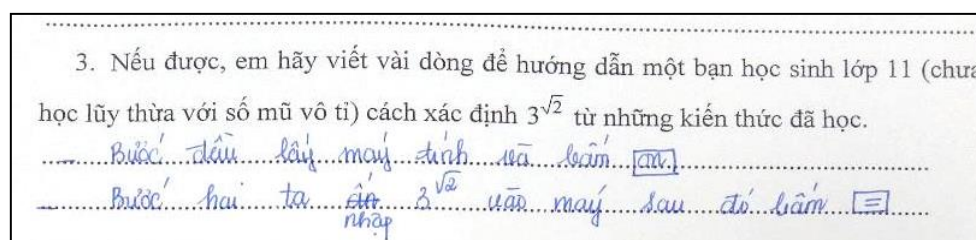 3. Nếu được, em hãy viết vài dòng để hướng dẫn một bạn học sinh lớp 11 (chưa
học lũy thừa với số mũ vô tỉ) cách xác định 3^√2 từ những kiến thức đã học.
Bước đầu lấy máy tính và bấm [on]
Bước hai ta nhập 3^√2 vào máy sau đó bấm [=]